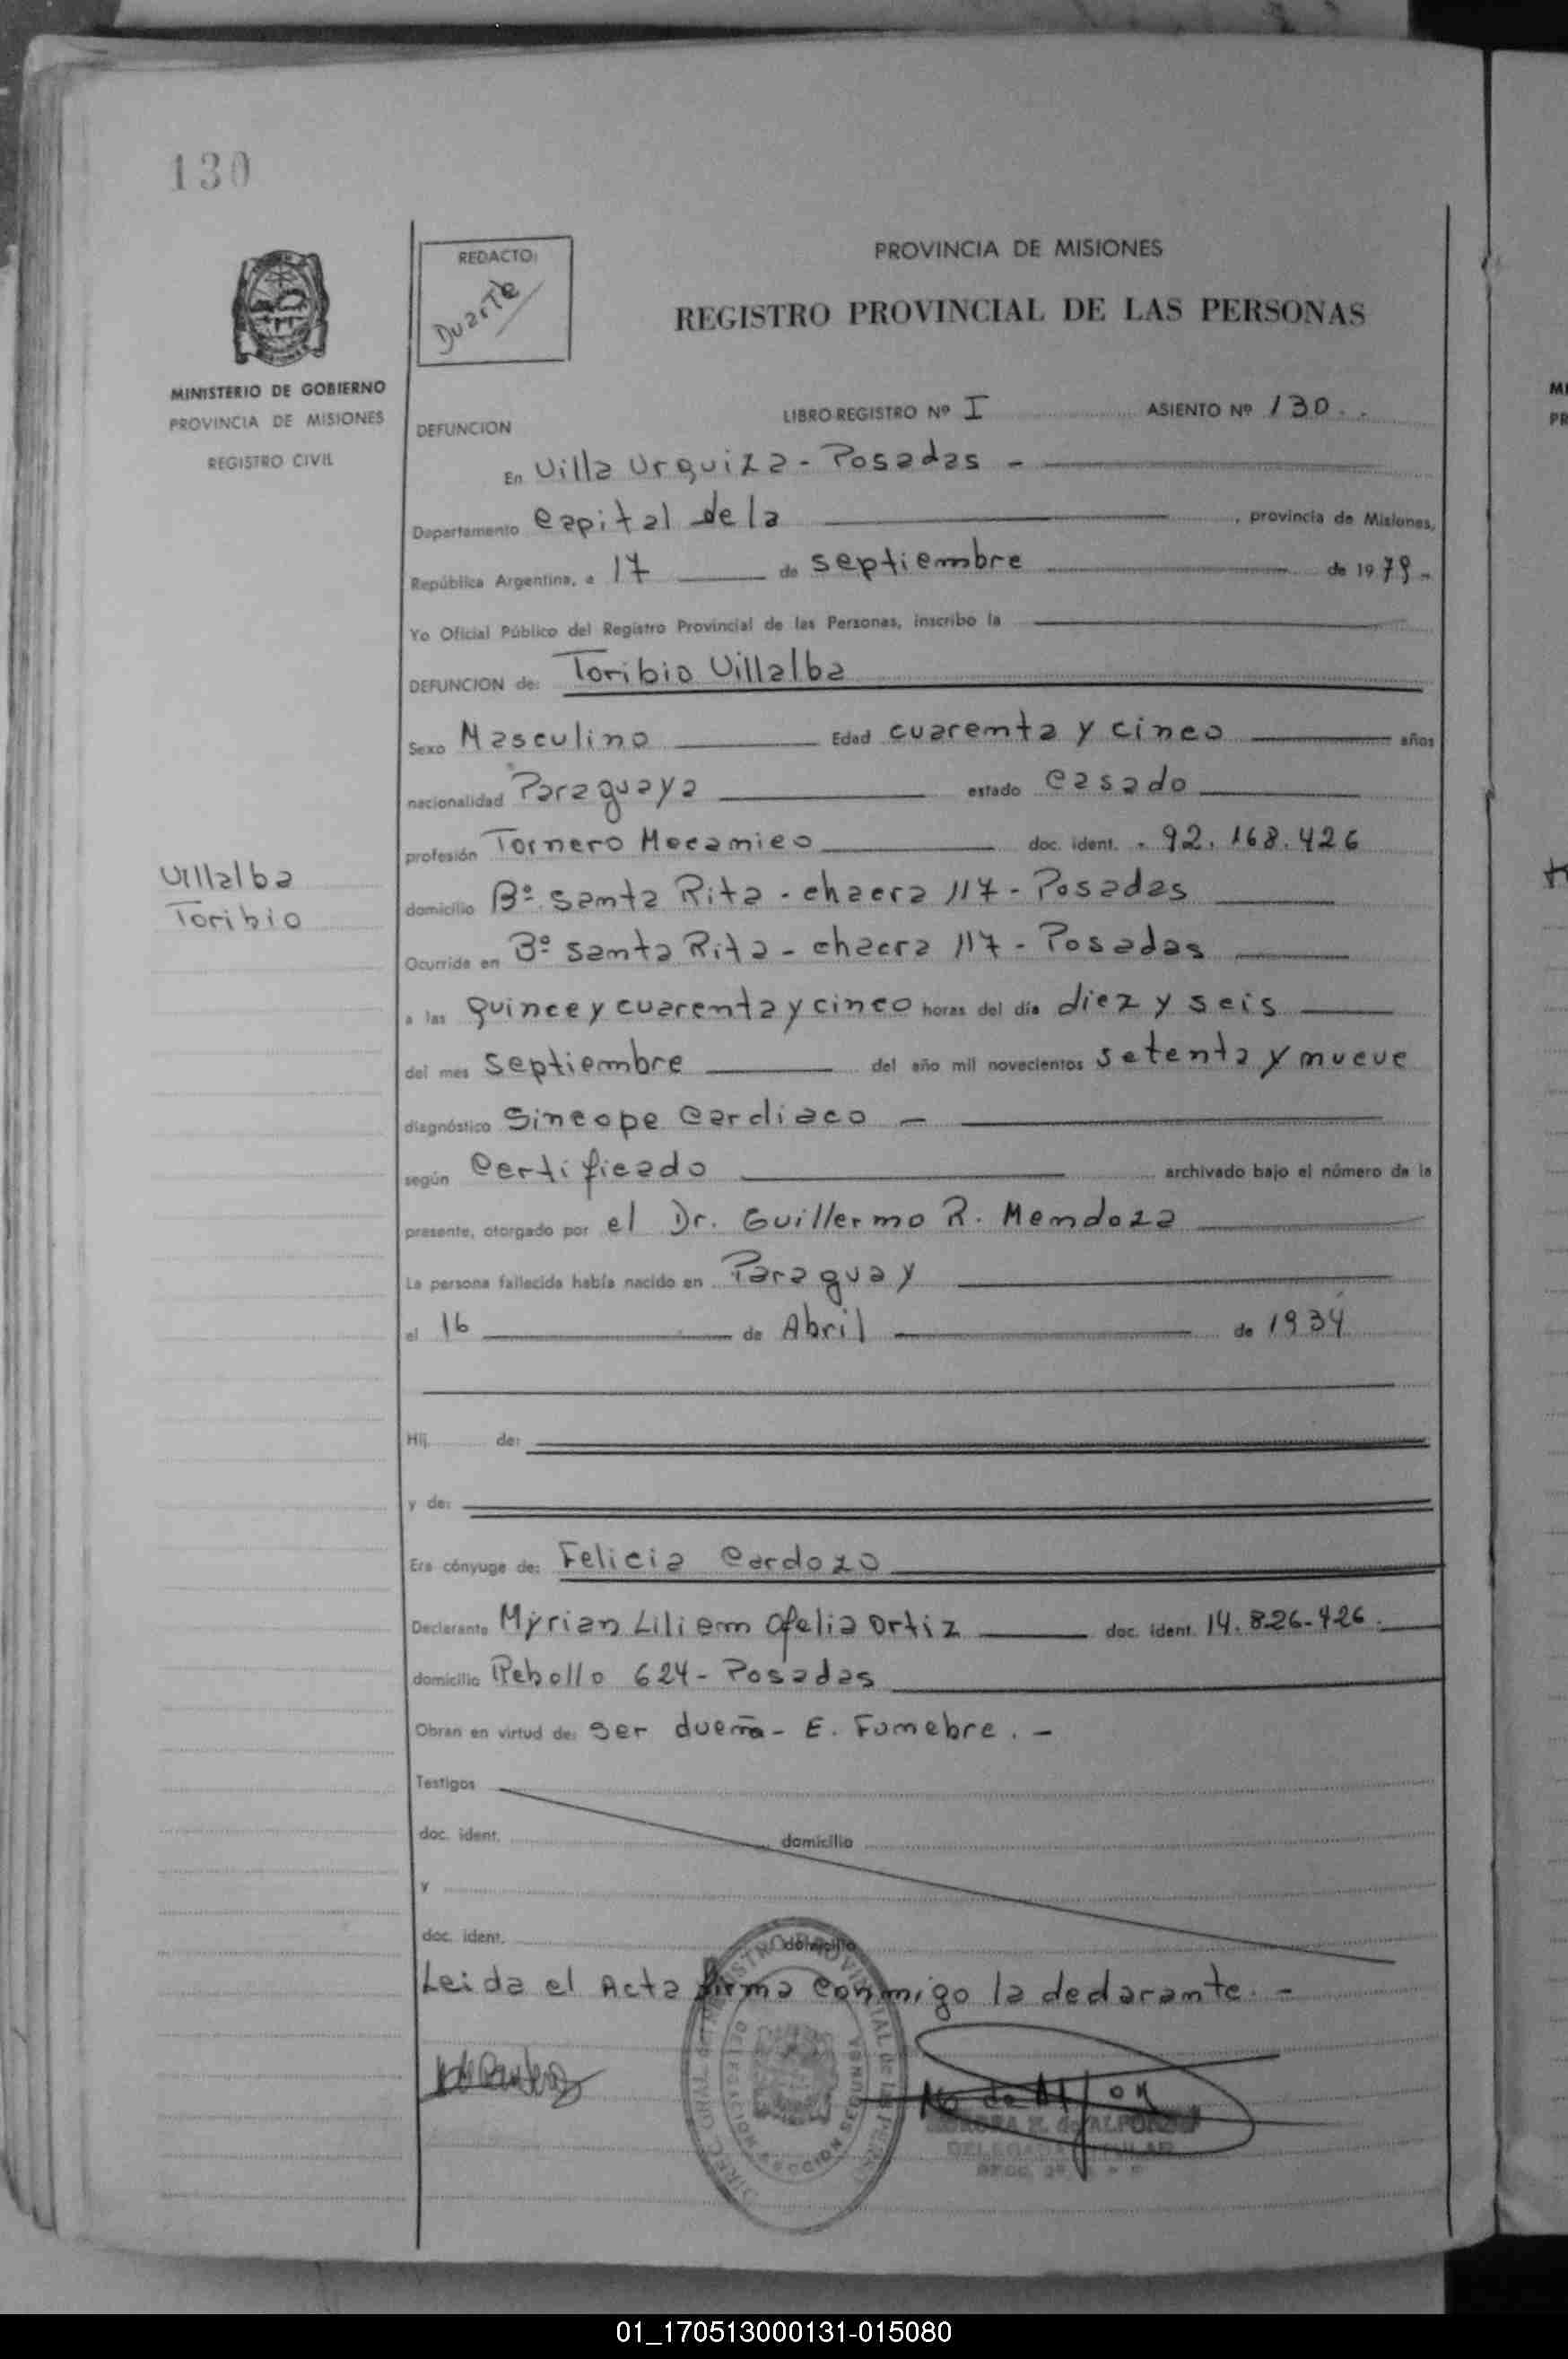 130
REDACTO:
Duarte
PROVINCIA DE MISIONES
REGISTRO PROVINCIAL DE LAS PERSONAS
MINISTERIO DE GOBIERNO
PROVINCIA DE MISIONES
REGISTRO CIVIL
LIBRO REGISTRO Nº I ASIENTO Nº 130.
DEFUNCION
En Villa Urquiza - Posadas -
Departamento Capital de la , provincia de Misiones,
República Argentina, a 17 de septiembre de 1979-
Yo Oficial Público del Registro Provincial de las Personas, inscribo la
DEFUNCION de: Toribio Villalba
Sexo Masculino Edad cuarenta y cinco años
nacionalidad Paraguaya estado Casado
profesión Tornero Mecanico doc. ident. 92.168.426
Villalba
Toribio
domicilio Bº. Santa Rita - chacra 117 - Posadas
Ocurrida en Bº Santa Rita - chacra 117 - Posadas
a las quince y cuarenta y cinco horas del día diez y seis
del mes septiembre del año mil novecientos setenta y nueve
diagnóstico Sincope Cardiaco -
según Certificado archivado bajo el número de la
presente, otorgado por el Dr. Guillermo R. Mendoza
La persona fallecida había nacido en Paraguay
el 16 de Abril de 1934
Hij de:
y de:
Era cónyuge de: Felicia Cardozo
Declarante Myrian Liliam Ofelia Ortiz doc. ident. 14.826-426.
domicilio Rebollo 624 - Posadas
Obran en virtud de: ser dueña - E. Funebre. -
Testigos
doc. ident. domicilio
y
doc. ident. domicilio
Leida el Acta firma conmigo la declarante. -
de ALFONZO
01_170513000131-015080